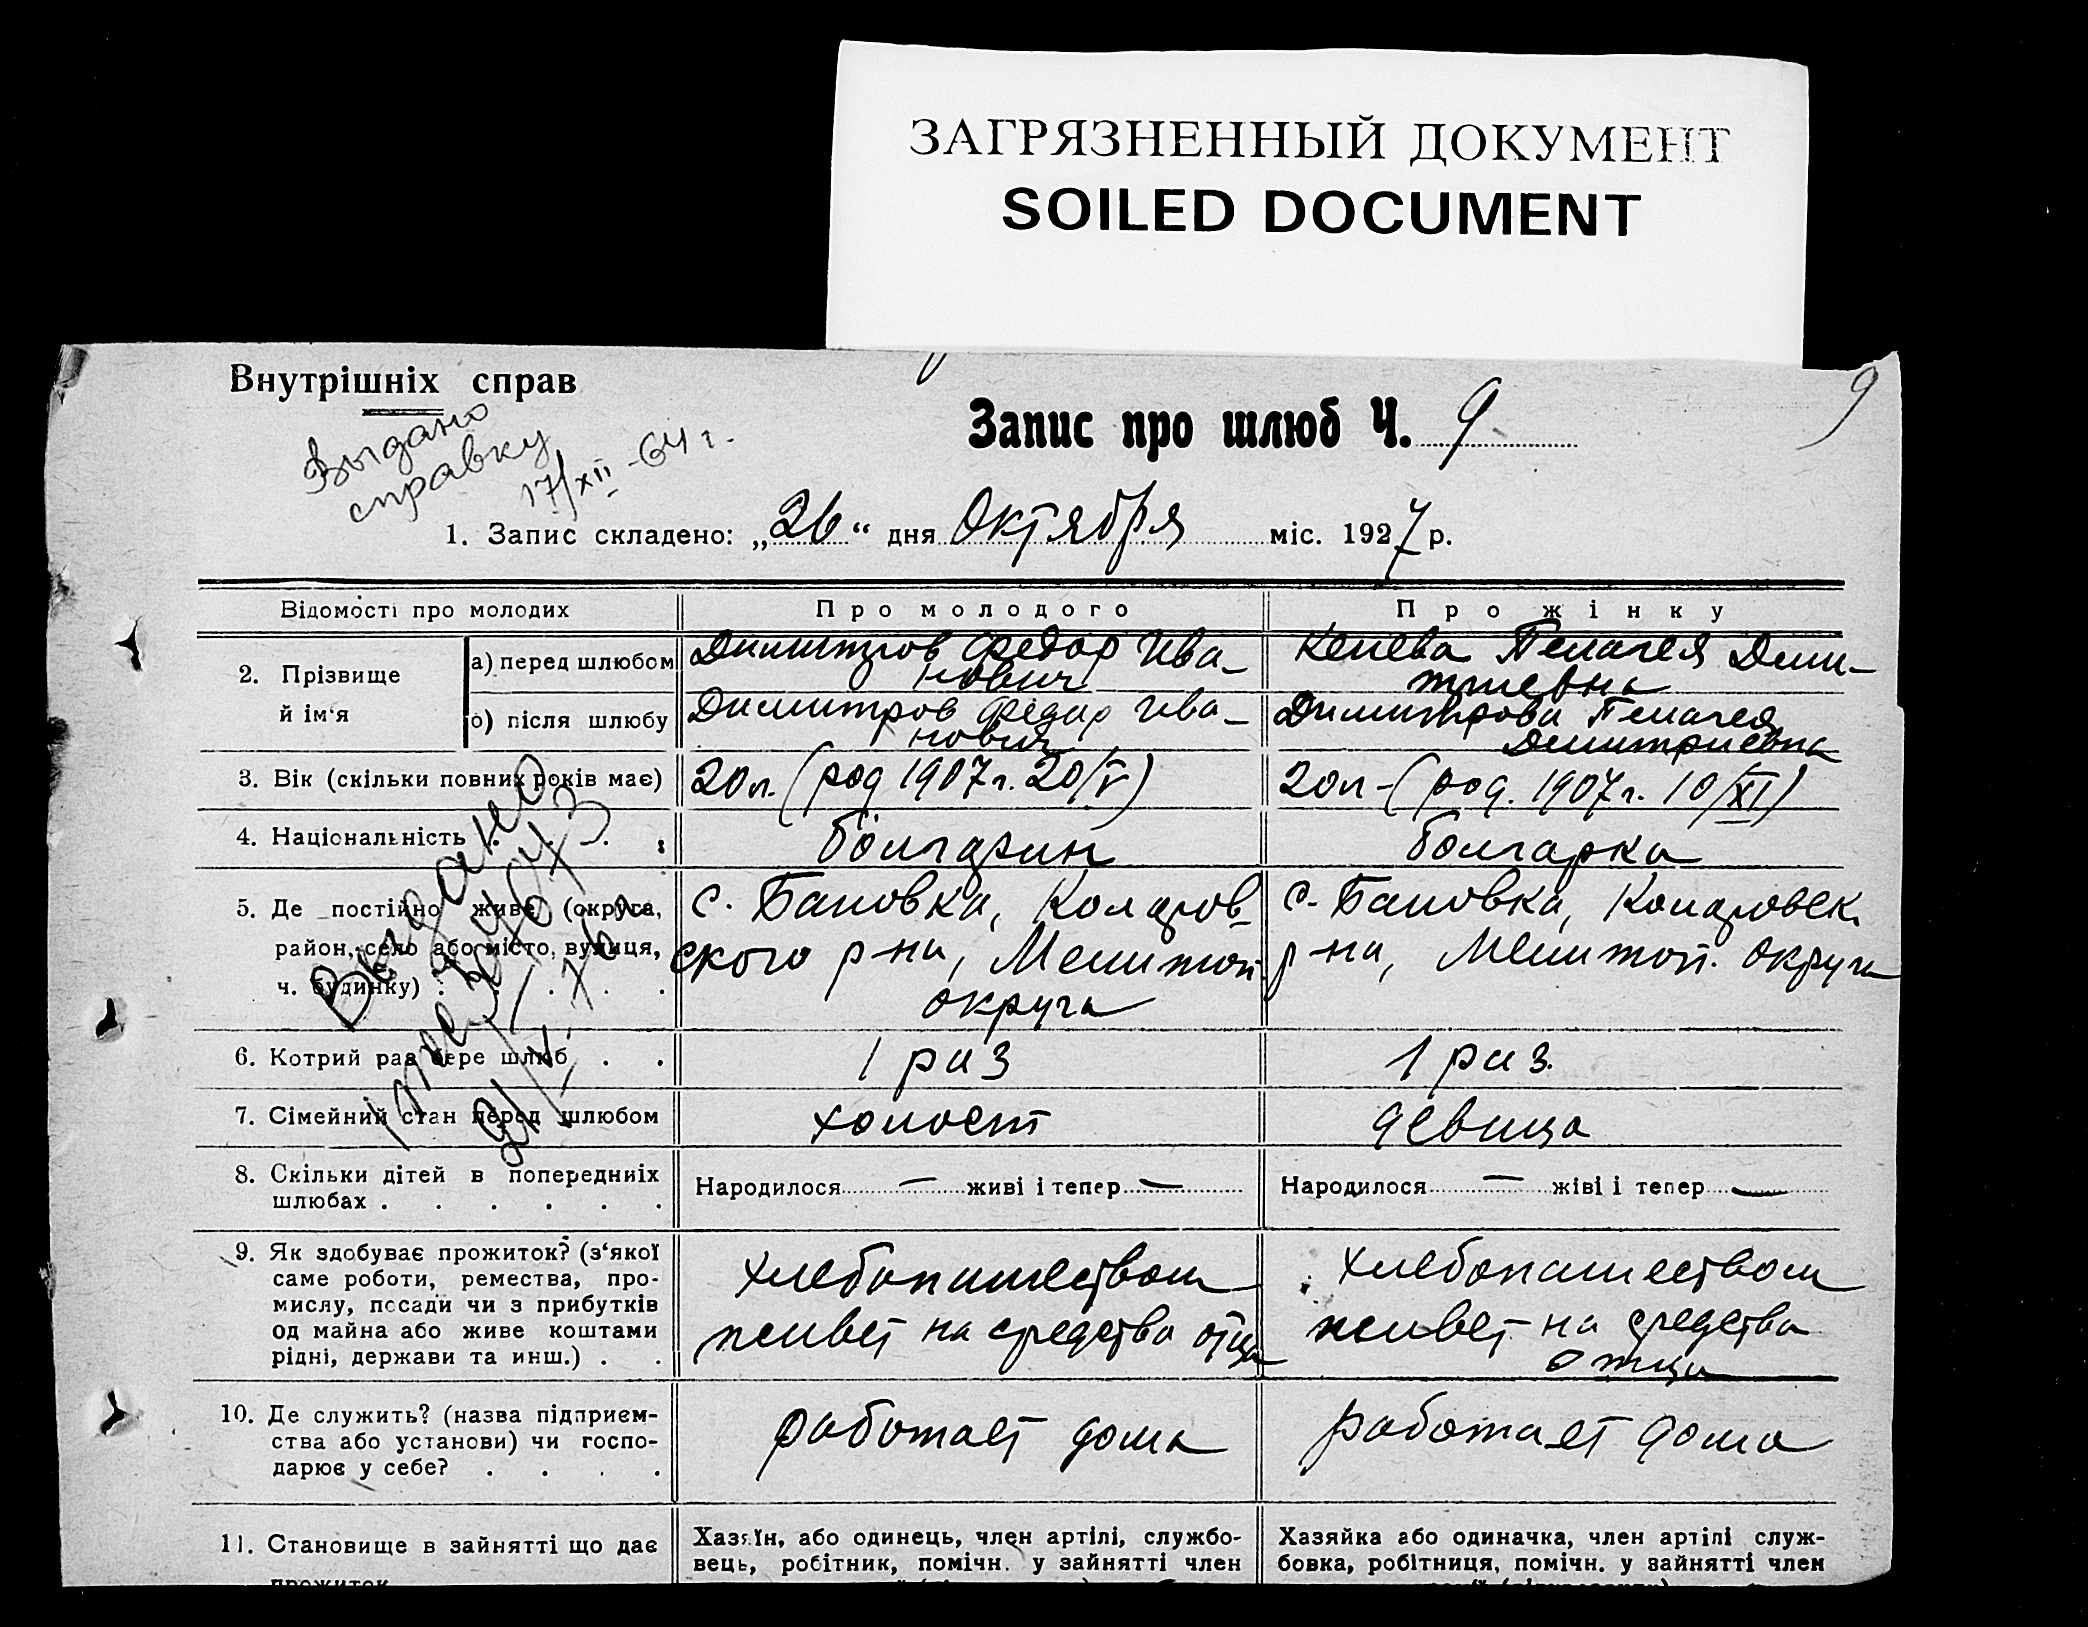 ЗАГРЯЗНЕННЫЙ ДОКУМЕНТ
SOILED DOCUMENT
Внутрішніх справ
9
Выдано
справку
17/XII-64 г.
Запис про шлюб Ч. 9
1. Запис складено: „26“ дня Октября міс. 1927 р.
Відомості про молодих
Про молодого
Про жінку
2. Прізвище
й ім'я
а) перед шлюбом
Димитров Федор Ива-
нович
Пелагея Дми-
триевна
б) після шлюбу
Димитров Федор Ива-
нович
Димитрова Пелагея
Димитриевна
3. Вік (скільки повних років має)
20 л. (род 1907 г. 20/V)
20 л - (род. 1907 г. 10/XI)
4. Національність . . . .
болгарин
болгарка
5. Де постійно живе (округа,
район, село або місто, вулиця,
ч. будинку) . . . . .
с. Бановка, Коларов-
ского р-на, Мелитоп.
округа
с. Бановка, Коларовск.
р-на, Мелитоп. округа
Выдано
6. Котрий раз бере шлюб . .
1 раз
1 раз.
7. Сімейний стан перед шлюбом
холост
девица
8. Скільки дітей в попередниіх
шлюбах . . . . . .
Народилося — живі і тепер —
Народилося — жіві і тепер —
9. Як здобуває прожиток? (з'якої
саме роботи, ремества, про-
мислу, посади чи з прибутків
од майна або живе коштами
рідні, держави та инш.) . .
хлебопашеством
живет на средства отца
хлебопашеством
живет на средства
отца
10. Де служить? (назва підприєм-
ства або установи) чи госпо-
дарює у себе? . . . .
работает дома
работает дома
11. Становище в зайнятті що дає
прожиток
Хазяїн, або одинець, член артілі, службо-
вець, робітник, помічн. у зайнятті член
Хазяйка або одиначка, член артілі служ-
бовка, робітниця, помічн. у зайнятті член